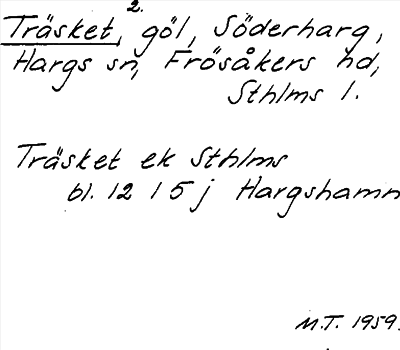 Träsket, 2. göl, Söderharg,
Hargs sn, Frösåkers hd,
Sthlms l.
Träsket ek Sthlms
bl. 12 I 5 j Hargshamn
M.T. 1959.